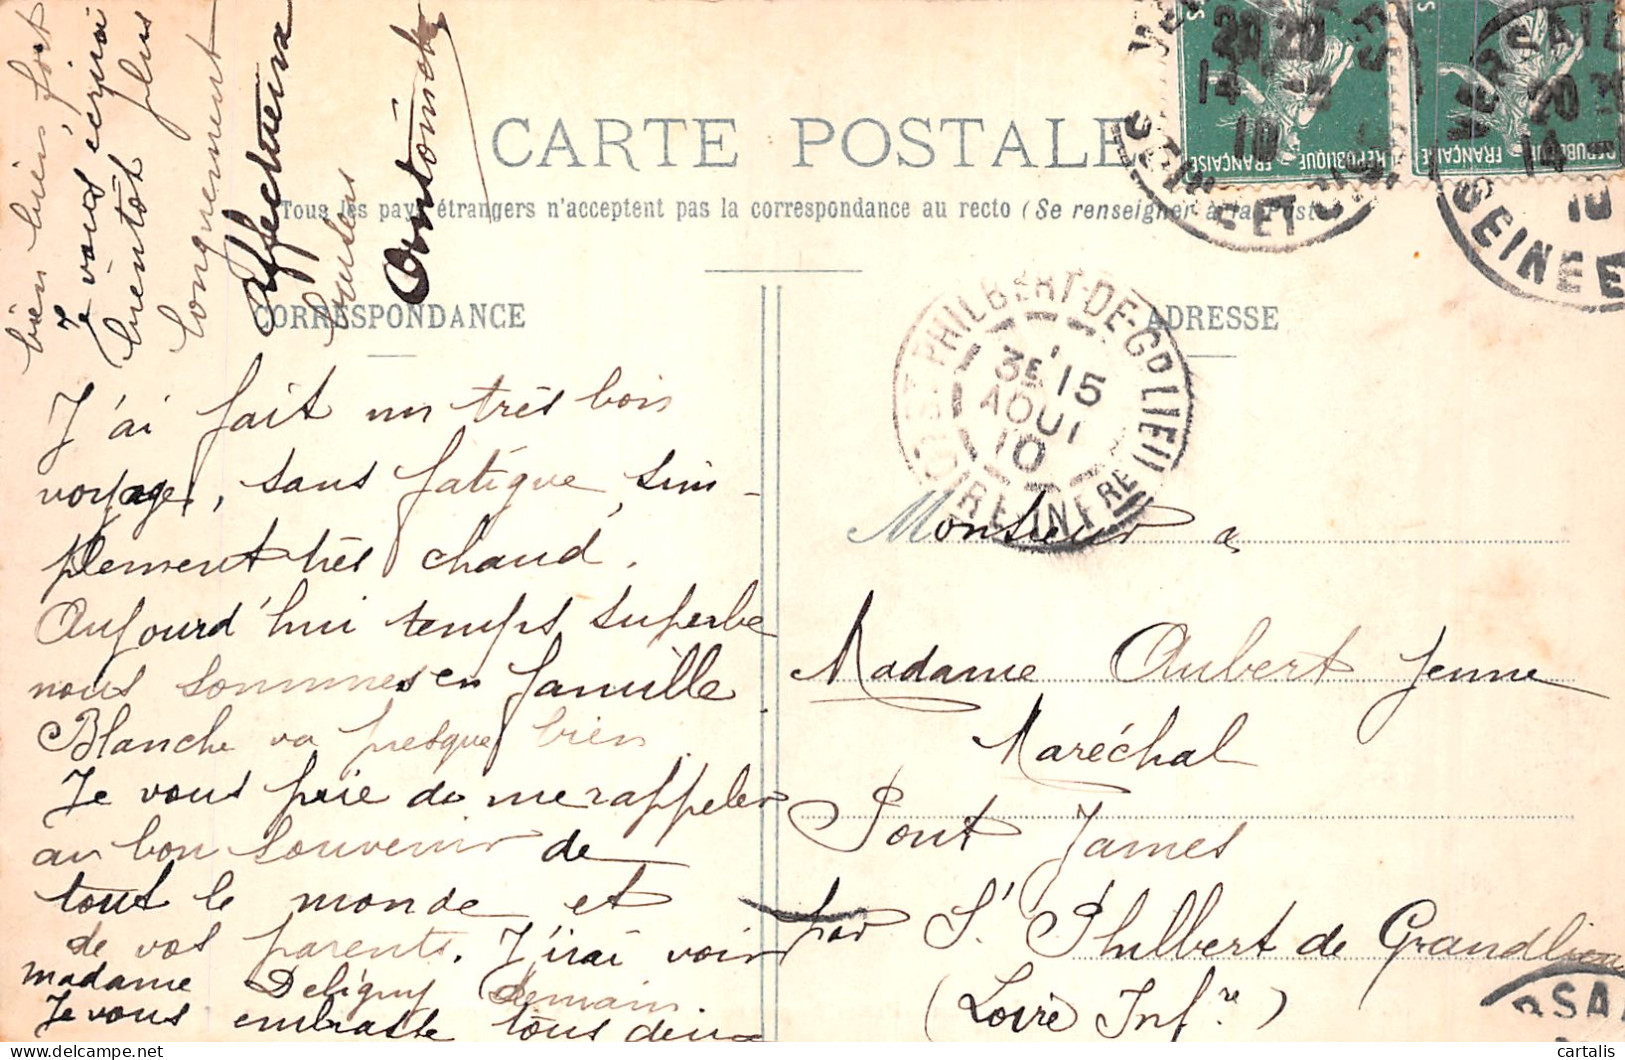 CARTE POSTALE
Tous les pays étrangers n'acceptent pas la correspondance au recto (Se renseigner à la Poste
CORRESPONDANCE
ADRESSE
J'ai fait un très bon
voyage, sans fatigue, sim-
plement très chaud.
Aujourd'hui temps superbe
nous sommes en famille
Blanche va presque bien
Je vous prie de me rappeler
au bon souvenir de
tout le monde et
de vos parents. J'irai voir
madame Deligny demain.
Je vous embrasse tous deux
bien bien fort
Je vous écrirai
bientôt plus
longuement
Affectueux
Antoinette
Monsieur &
Madame Aubert Jeune
Maréchal
Pont James
par St Philbert de Grandlieu
(Loire Infre)
ST PHILBERT-DE-GDLIEU
3E 15
AOUT
10
LOIRE-INFRE
VERSAILLES
20 20
14
10
SEINE ET OISE
REPUBLIQUE FRANÇAISE
VERSAIL
20 20
14
10
SEINE E
REPUBLIQUE FRANÇAISE
RSA
cartalis